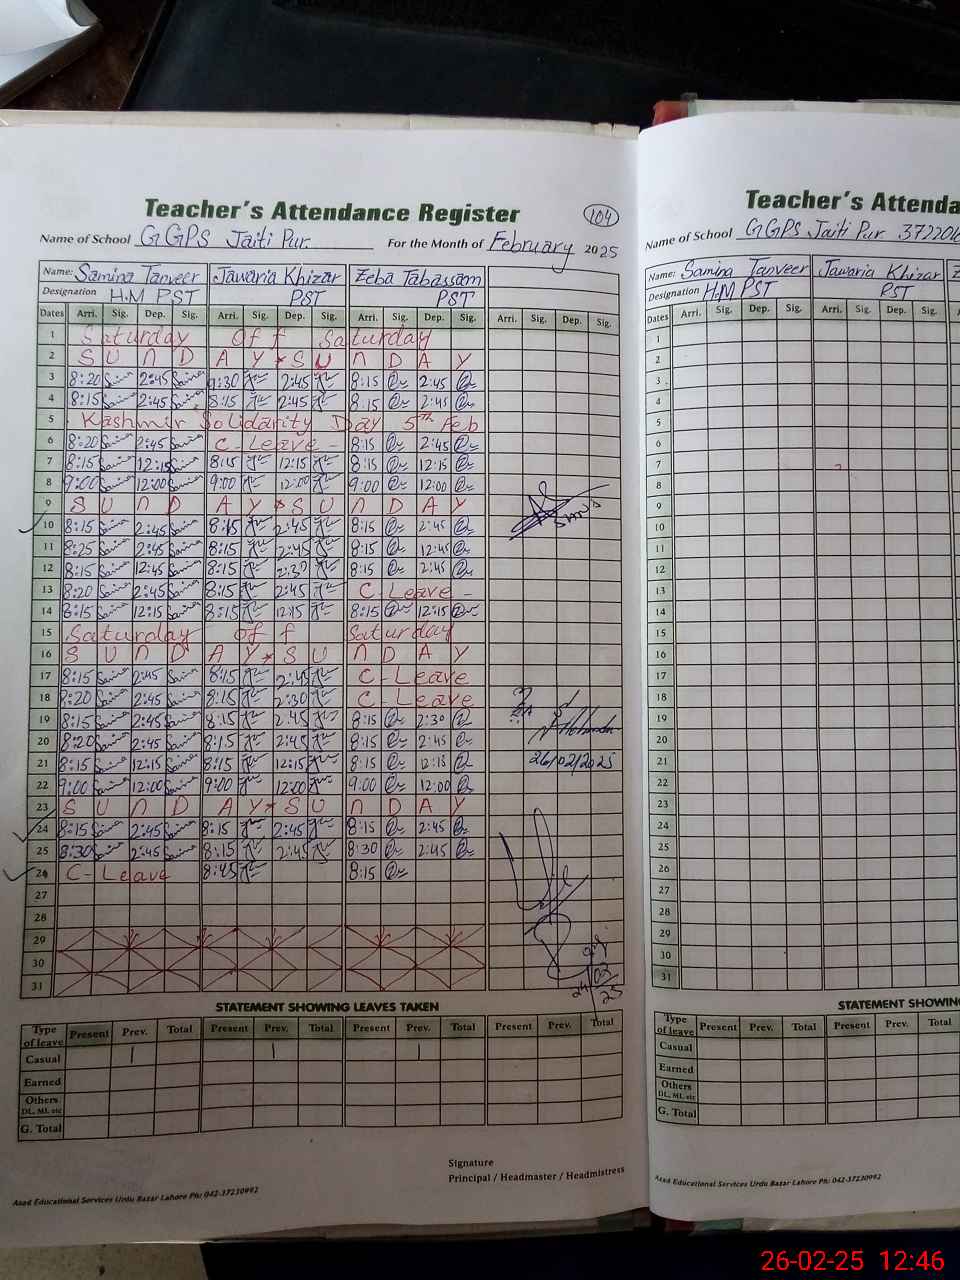 Teacher's Attendance Register 104
Name of School GGPS Jaiti Pur. For the Month of February 2025
Name: Samina Tanveer Jawaria Khizar Zeba Tabassam
Designation H.M PST PST PST
Dates Arri. Sig. Dep. Sig. Arri. Sig. Dep. Sig. Arri. Sig. Dep. Sig. Arri. Sig. Dep. Sig.
1 Saturday Off Saturday
2 SUNDAY * SUNDAY
3 8:20 2:45 9:30 2:45 8:15 2:45
4 8:15 2:45 8:15 2:45 8:15 2:45
5 Kashmir Solidarity Day 5th Feb
6 8:20 2:45 C-Leave - 8:15 2:45
7 8:15 12:15 8:15 12:15 8:15 12:15
8 9:00 12:00 9:00 12:00 9:00 12:00
9 SUNDAY * SUNDAY
10 8:15 2:45 8:15 2:45 8:15 2:45
11 8:25 2:45 8:15 2:45 8:15 12:45
12 8:15 12:45 8:15 2:30 8:15 2:45
13 8:20 2:45 8:15 2:45 C-Leave -
14 8:15 12:15 8:15 12:15 8:15 12:15
15 Saturday off Saturday
16 SUNDAY * SUNDAY
17 8:15 2:45 8:15 2:45 C-Leave
18 8:20 2:45 8:15 2:30 C-Leave
19 8:15 2:45 8:15 2:45 8:15 2:30
20 8:20 2:45 8:15 2:45 8:15 2:45
21 8:15 12:15 8:15 12:15 8:15 12:15
26/02/2025
22 9:00 12:00 9:00 12:00 9:00 12:00
23 SUNDAY * SUNDAY
24 8:15 2:45 8:15 2:45 8:15 2:45
25 8:30 2:45 8:15 2:45 8:30 2:45
26 C-Leave 8:45 8:15
27
28
29
30
31
24 03 25
STATEMENT SHOWING LEAVES TAKEN
Type of leave Present Prev. Total Present Prev. Total Present Prev. Total Present Prev. Total
Casual 1 1
Earned
Others DL, ML etc
G. Total
Signature
Principal / Headmaster / Headmistress
Asad Educational Services Urdu Bazar Lahore Ph: 042-37230992
Teacher's Attenda
Name of School GGPS Jaiti Pur
Name: Samina Tanveer Jawaria Khizar
Designation H.M PST PST
Dates Arri. Sig. Dep. Sig. Arri. Sig. Dep. Sig.
1
2
3
4
5
6
7
8
9
10
11
12
13
14
15
16
17
18
19
20
21
22
23
24
25
26
27
28
29
30
31
STATEMENT SHOWING
Type of leave Present Prev. Total Present Prev. Total
Casual
Earned
Others DL, ML etc
G. Total
Asad Educational Services Urdu Bazar Lahore Ph: 042-37230992
26-02-25 12:46